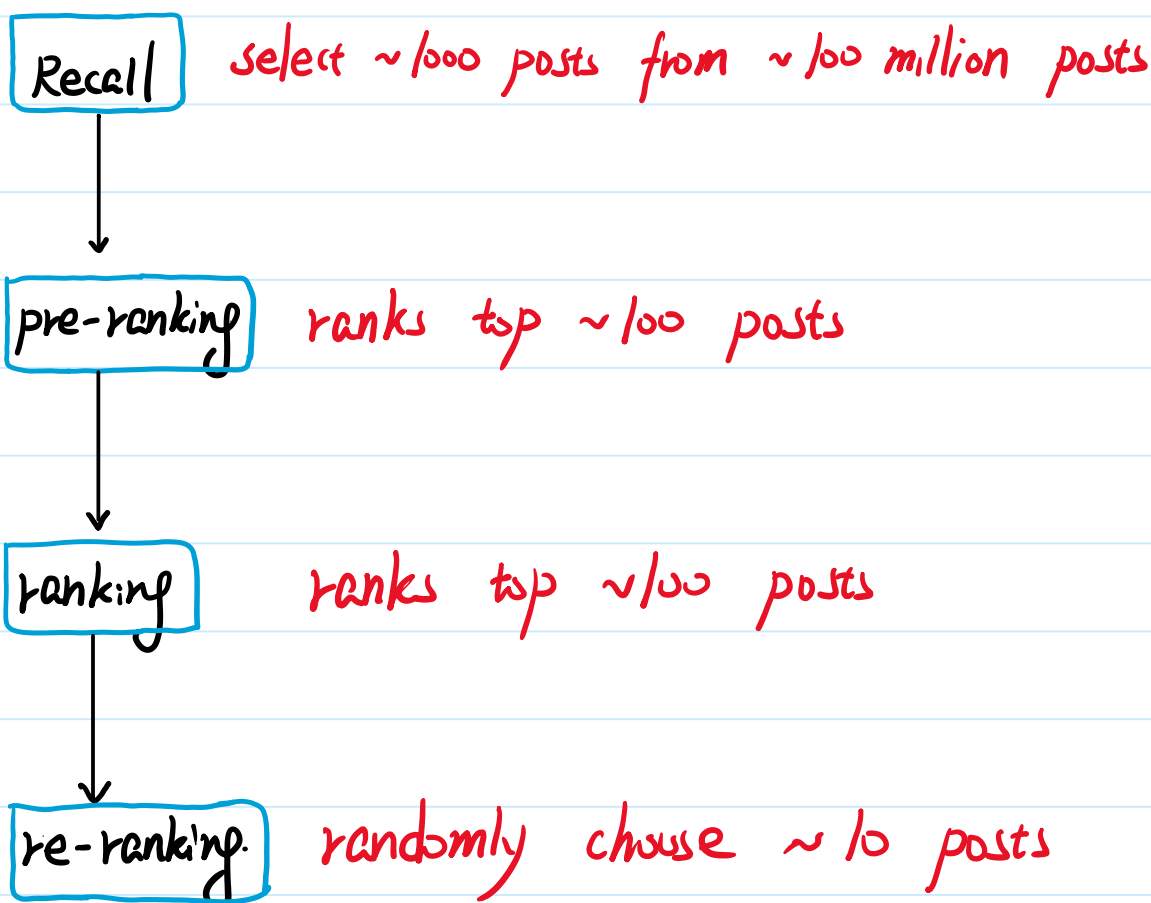 Recall select ~1000 posts from ~100 million posts
pre-ranking ranks top ~100 posts
ranking ranks top ~100 posts
re-ranking. randomly choose ~10 posts